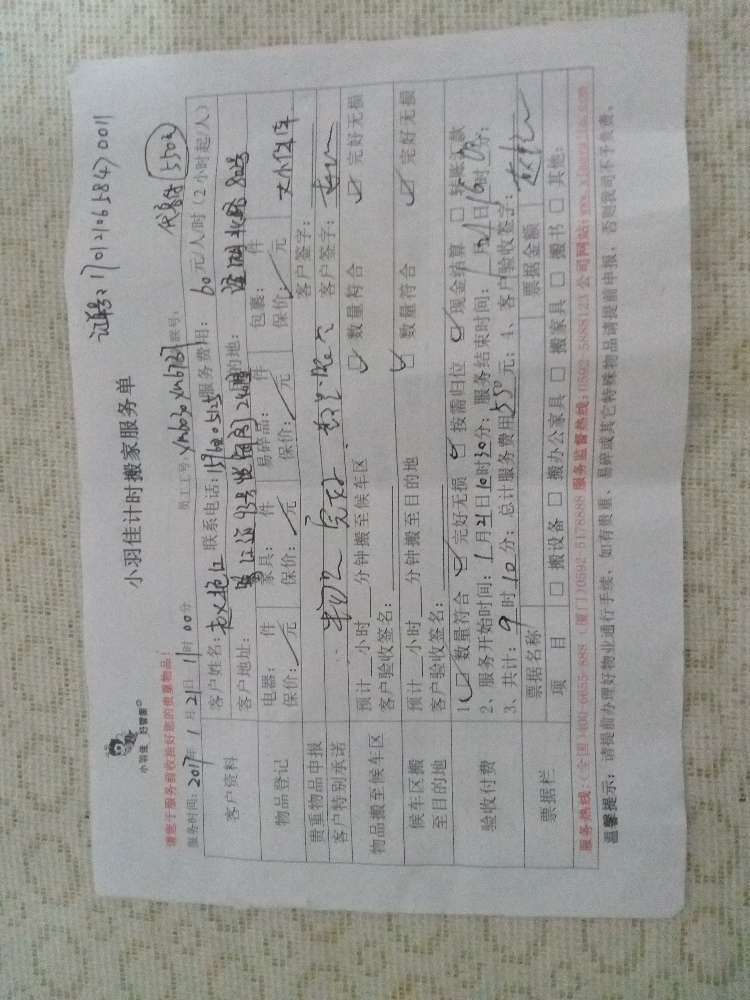 小羽佳 好管家
证单号：170121065847001
小羽佳计时搬家服务单
代金付 550元
请您于服务前收拾好您的贵重物品！
服务时间：2017年1月21日11时00分 员工工号
客户资料
客户姓名： 联系电话： 服务费用：60元/人时（2小时起/人）
客户地址： 目的地：
物品登记
电器： 件 家具： 件 易碎品： 件 包裹： 件
保价： 元 保价： 元 保价： 元 保价： 元
贵重物品申报 客户签字：
客户特别承诺 客户签字：
物品搬至候车区
预计 小时 分钟搬至候车区 数量符合 完好无损
客户验收签名：
候车区搬至目的地
预计 小时 分钟搬至目的地 数量符合 完好无损
客户验收签名：
验收付费
1、数量符合 完好无损 按需归位 现金结算 转账汇款
2、服务开始时间：1月21日10时30分；服务结束时间：1月21日16时 分；
3、共计：9时10分；总计服务费用550元；4、客户验收签字：
票据栏
票据名称 票据金额
项 目 □ 搬设备 □ 搬办公家具 □ 搬家具 □ 搬书 □ 其他：
服务热线：（全国）400-6655-888（厦门）0592 5178888 服务监督热线：0592 5888123 公司网站：www.xiaoyujia.com
温馨提示：请提前办理好物业通行手续、如有贵重、易碎或其它特殊物品请提前申报，否则我司不予负责。